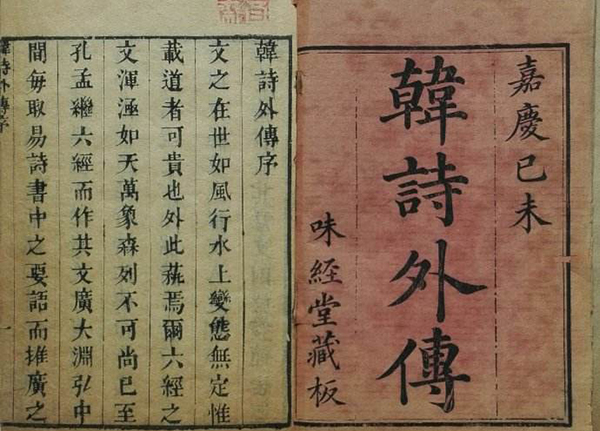 嘉慶己未
韓詩外傳
味經堂藏板
韓詩外傳序
文之在世如風行水上變態無定惟
載道者可貴也外此蓺焉爾六經之
文渾涵如天萬象森列不可尚已至
孔孟繼六經而作其文廣大淵弘中
間每取易詩書中之要語而推廣之
韓詩外傳序
一